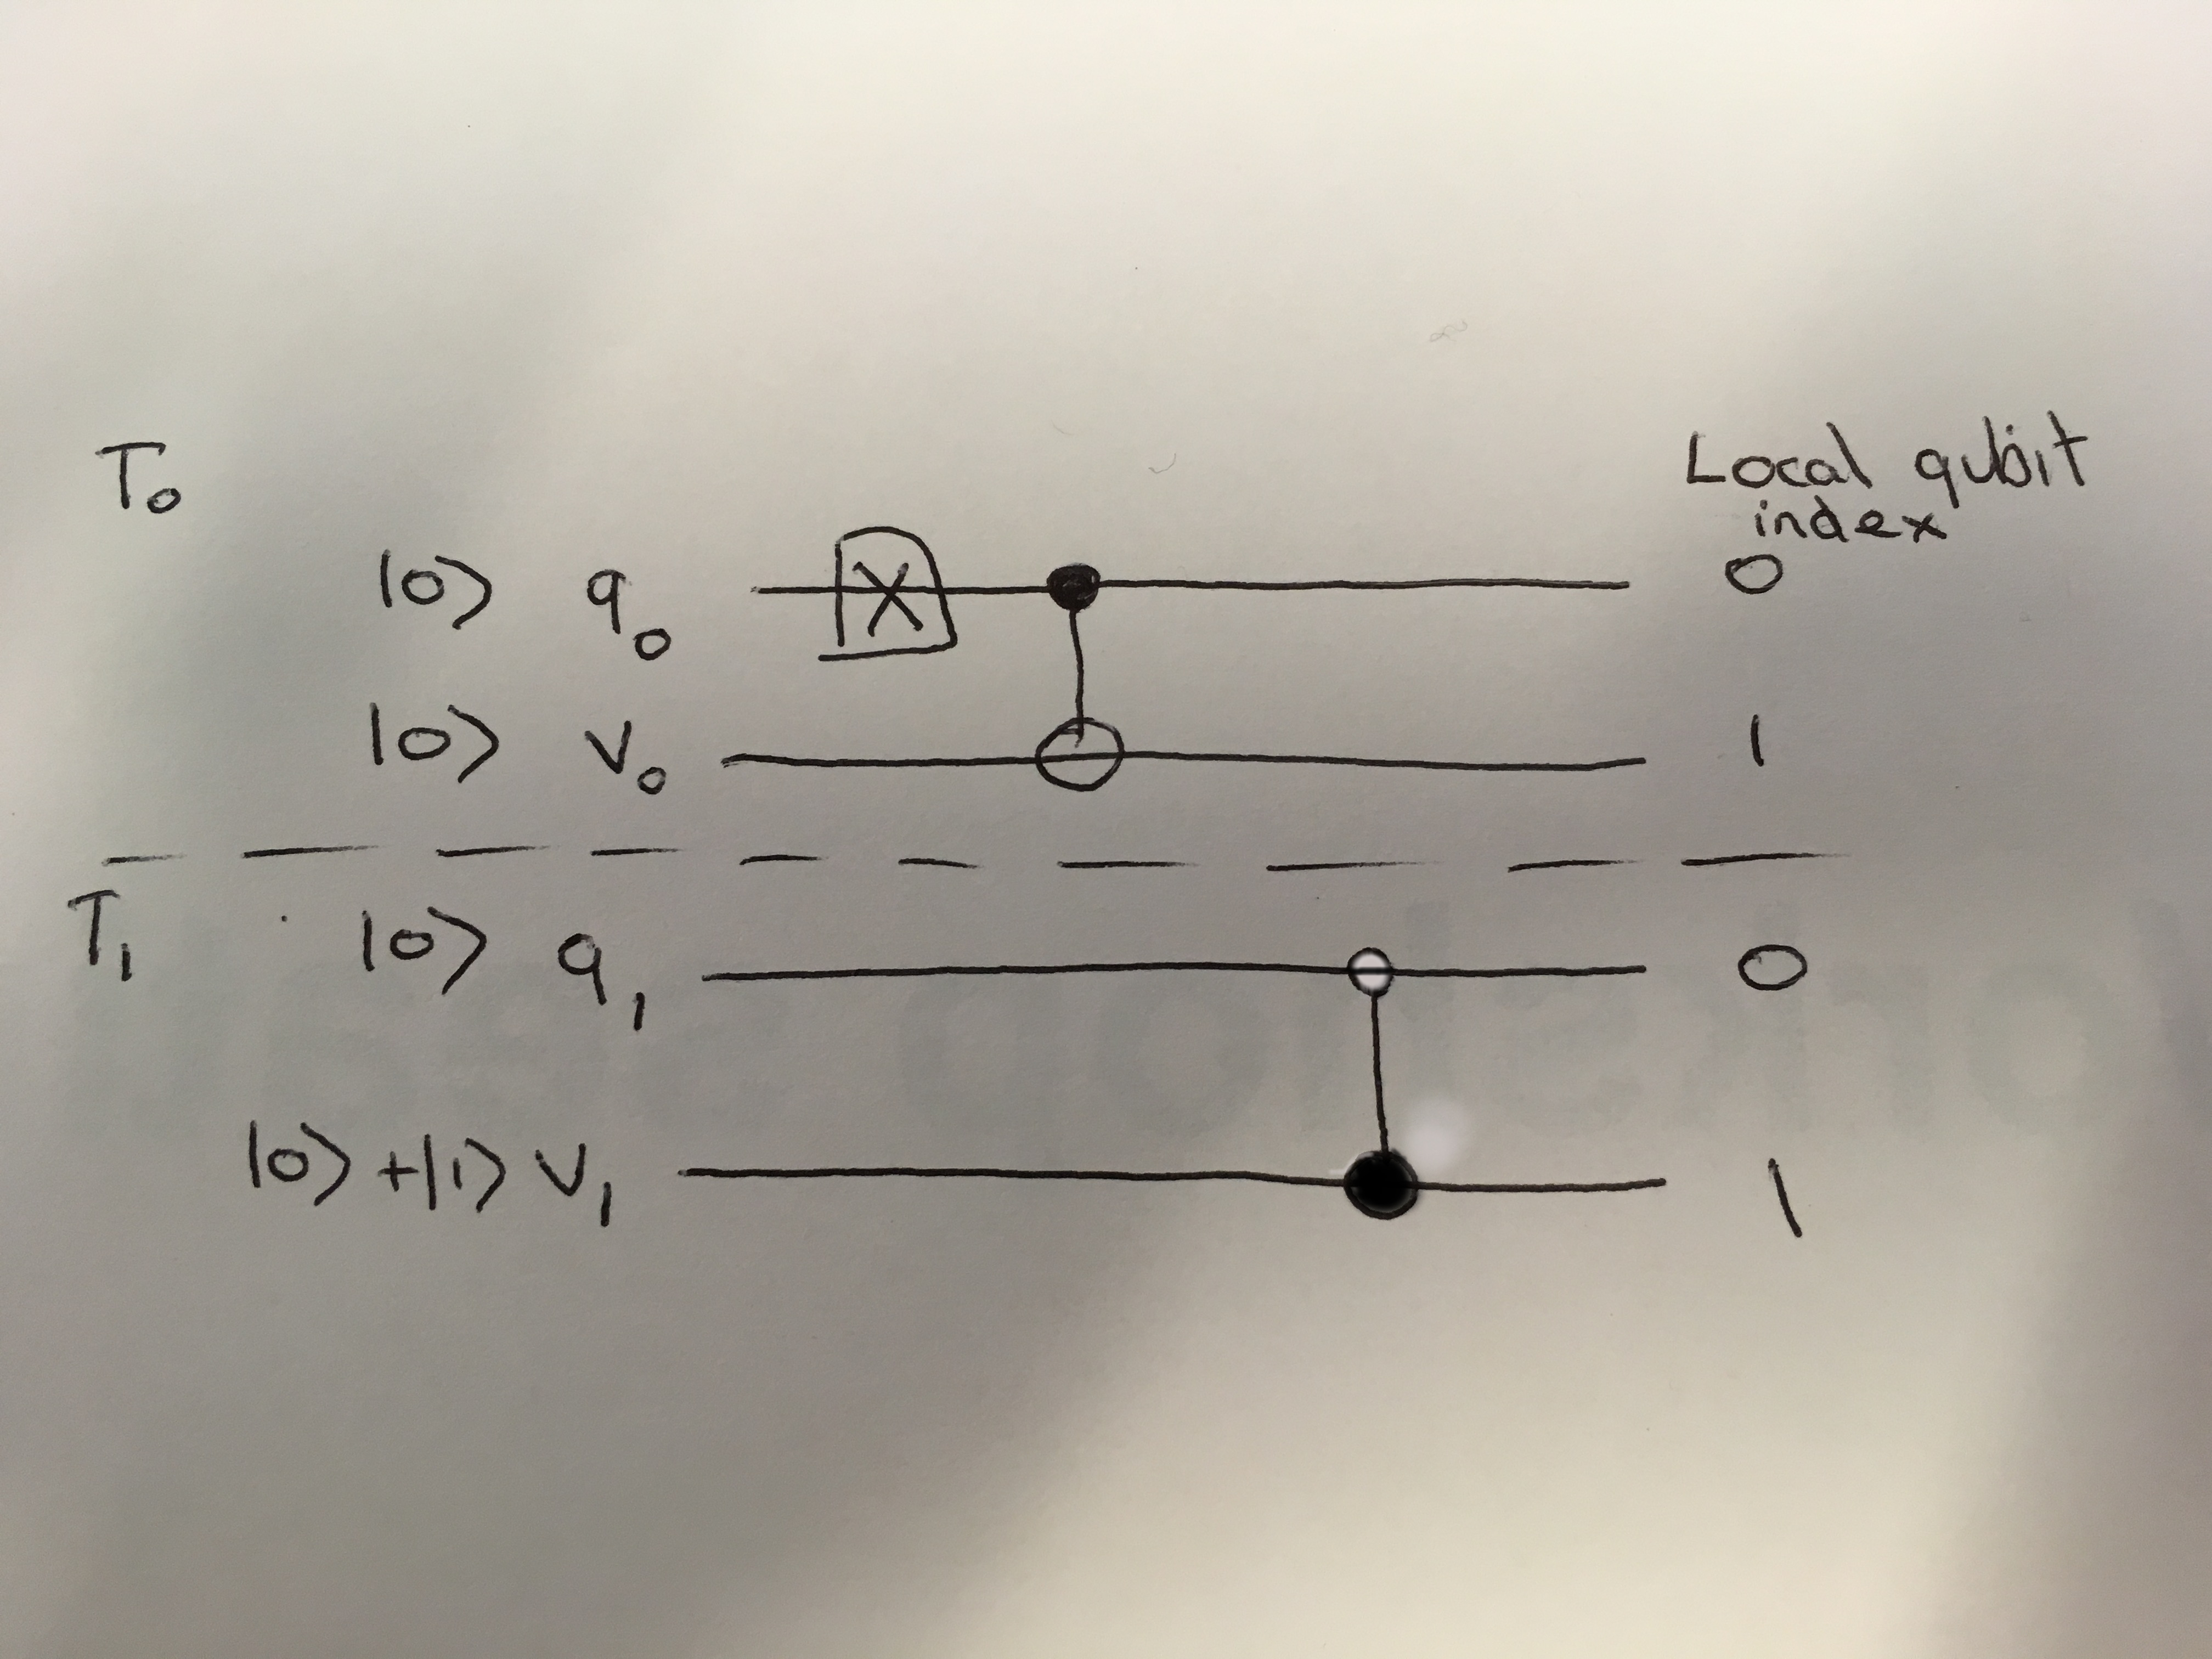 T₀
Local qubit
index
|0⟩ q₀ X 0
|0⟩ v₀ 1
T₁ |0⟩ q₁ 0
|0⟩+|1⟩ v₁ 1